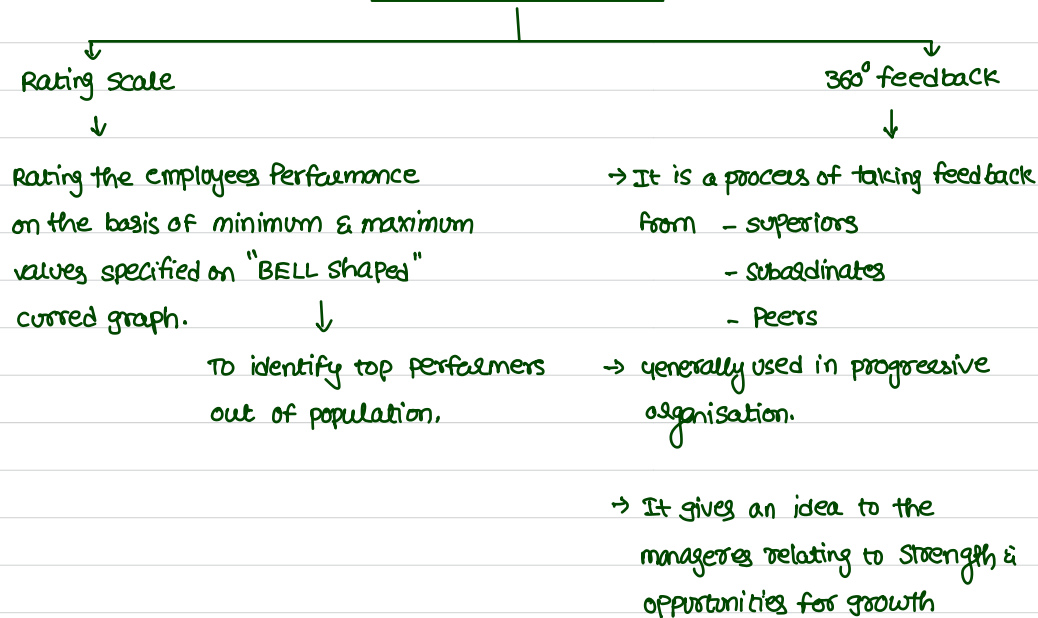 Rating scale
360° feedback
Rating the employees Performance
on the basis of minimum & maximum
values specified on "BELL shaped"
curred graph.
To identify top performers
out of population.
→ It is a process of taking feedback
from - superiors
- subordinates
- Peers
→ generally used in progressive
organisation.
→ It gives an idea to the
manageres relating to strength &
oppurtunities for growth